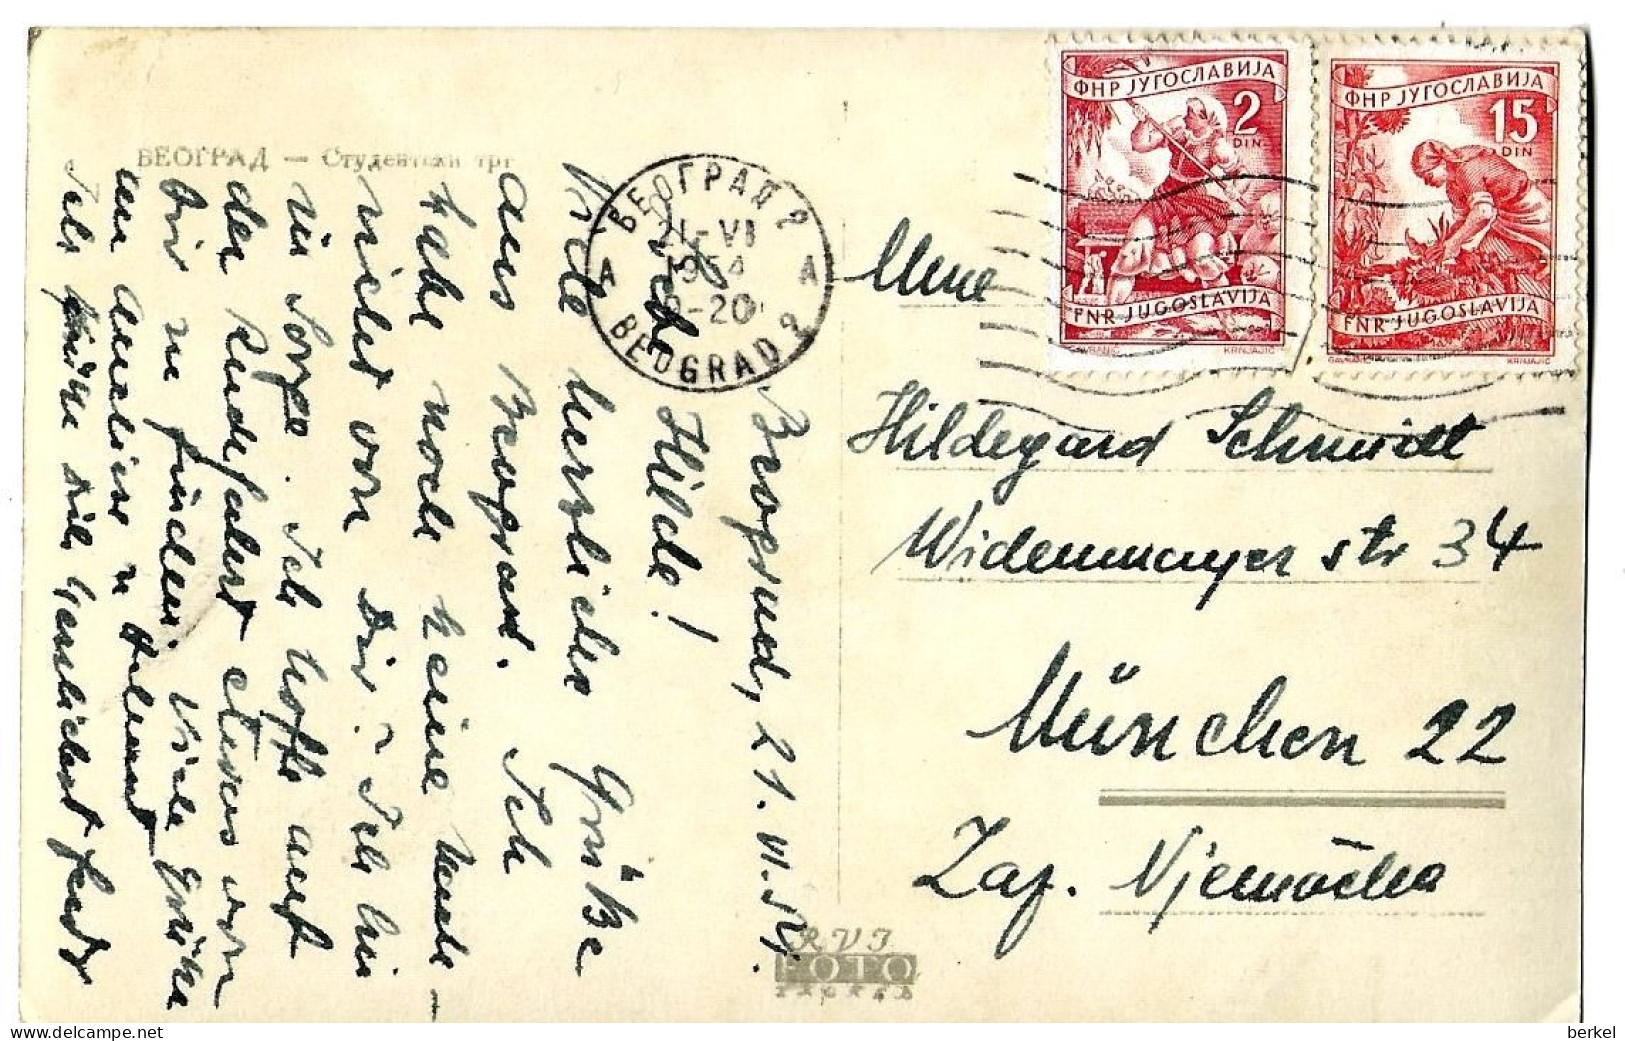 БЕОГРАД — Студентски трг
Beograd, 21. VI. 54.
Hilde!
Viele herzliche Grüße
aus Beograd. Ich
habe noch keine Nach-
richt von Dir. Ich bin
in Sorge. Ich hoffe auf
der Rückfahrt etwas von
Dir zu finden. Viele Grüße
an
Ich
БЕОГРАД 2
21-VI
1954
9-20
A A
BEOGRAD 2
ФНР ЈУГОСЛАВИЈА
2
DIN
FNR JUGOSLAVIJA
KRNJAJIĆ
ФНР ЈУГОСЛАВИЈА
15
DIN
FNR JUGOSLAVIJA
KRNJAJIĆ
Hildegard Schmidt
Widenmayer str 34
München 22
Zap. Njemačka
RVI
FOTO
berkel